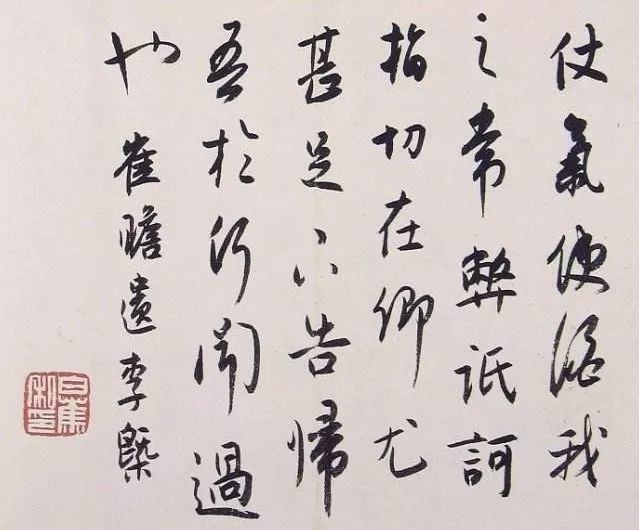 仗氣使酒我
之常弊詆訶
指切在卿尤
甚足下告歸
吾於何聞過
也 崔瞻遺李槩